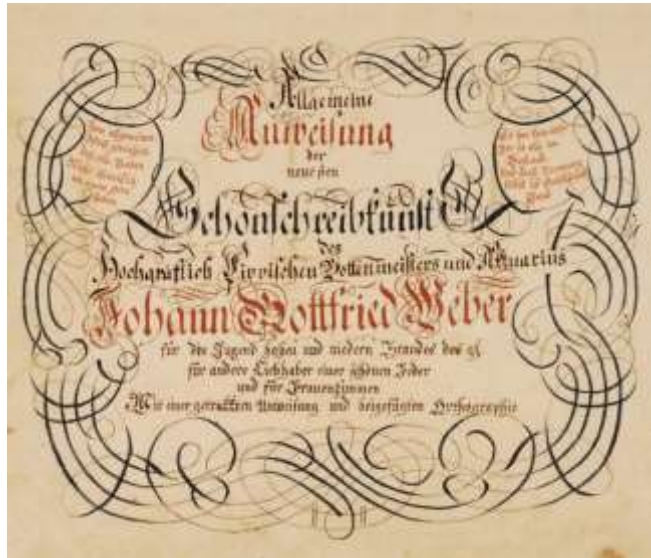 Allgemeine
Anweisung
der
neuesten
Schönschreibkunst
des
Hochgräflich Lippischen Bottenmeisters und Aktuarius
Johann Gottfried Weber
für die Jugend hohen und niedern Standes des
für andere Liebhaber einer schönen Feder
und für Frauenzimmer
Mit einer gedruckten Anweisung und beigefügten Orthographie